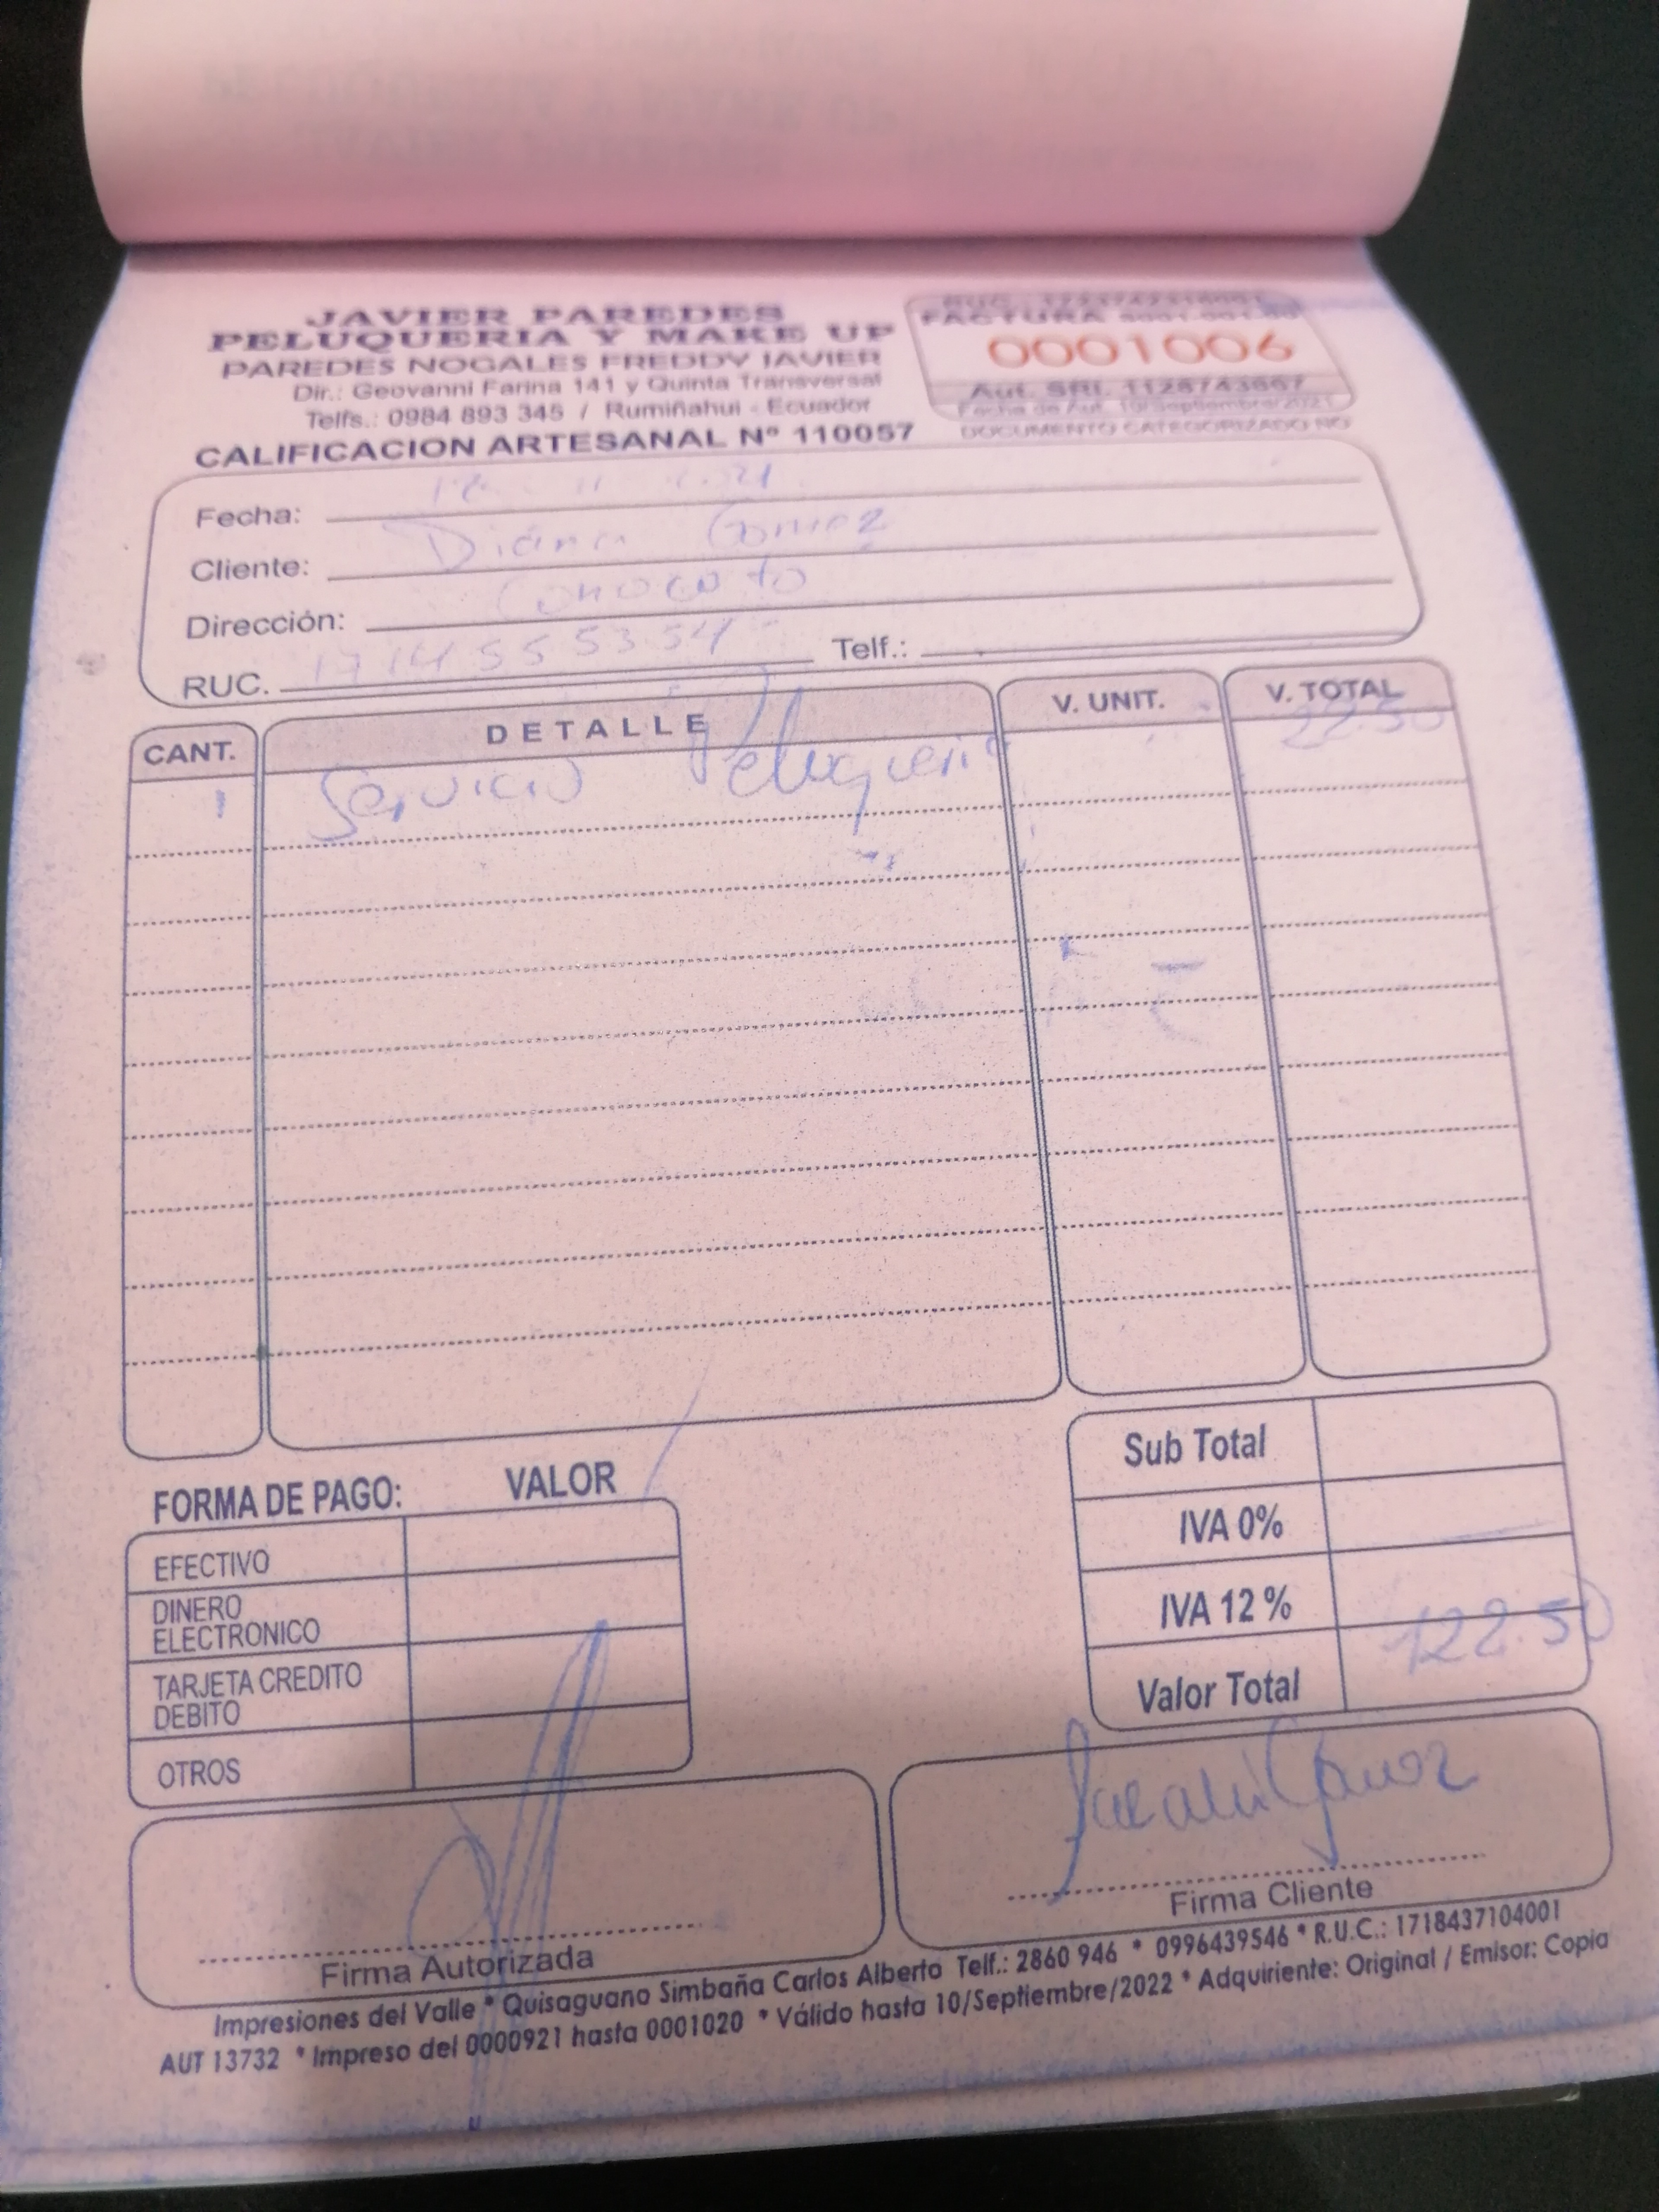 JAVIER PAREDES
PELUQUERIA Y MAKE UP
PAREDES NOGALES FREDDY JAVIER
Dir.: Geovanni Farina 141 y Quinta Transversal
Telfs.: 0984 893 345 / Rumiñahui - Ecuador
CALIFICACION ARTESANAL Nº 110057
FACTURA
0001006
Aut. SRI. 1128743667
Fecha de Aut. 10/Septiembre/2021
DOCUMENTO CATEGORIZADO NO
Fecha:
Cliente: Diana Gomez
Dirección: Conocoto
RUC. 1714555354 Telf.:
CANT. DETALLE V. UNIT. V. TOTAL
1 Servicio Peluqueria 22.50
FORMA DE PAGO: VALOR
EFECTIVO
DINERO ELECTRONICO
TARJETA CREDITO DEBITO
OTROS
Sub Total
IVA 0%
IVA 12 %
Valor Total 122.50
Firma Autorizada
Firma Cliente
Impresiones del Valle * Quisaguano Simbaña Carlos Alberto Telf.: 2860 946 * 0996439546 * R.U.C.: 1718437104001
AUT 13732 * Impreso del 0000921 hasta 0001020 * Válido hasta 10/Septiembre/2022 * Adquiriente: Original / Emisor: Copia